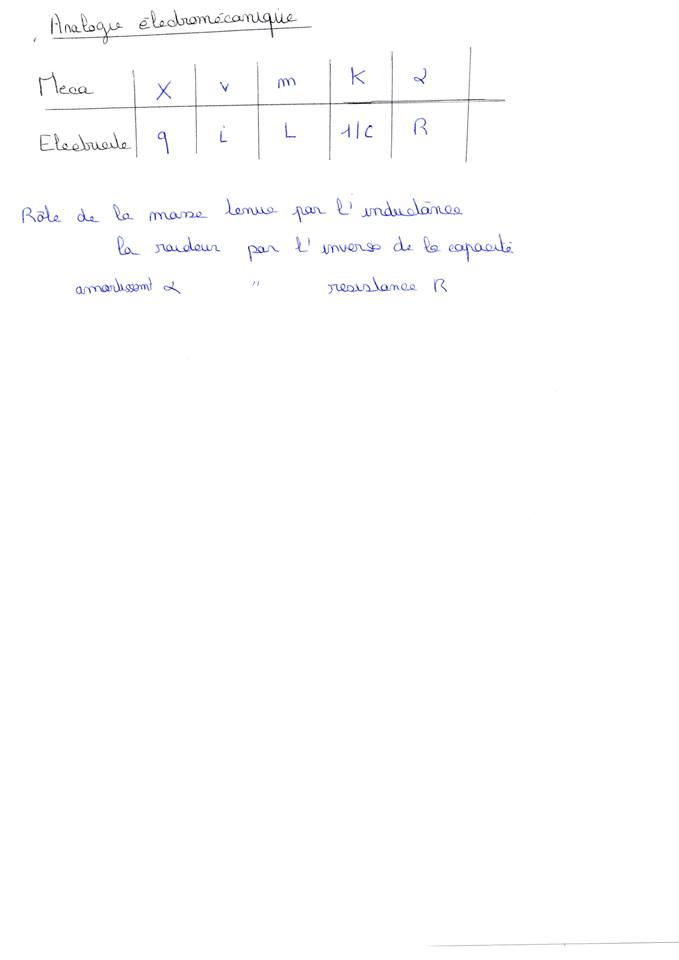 Analogie électromécanique
Meca X v m K α
Electricite q i L 1/C R
Rôle de la masse tenue par l'inductance
la raideur par l'inverse de la capacité
amortissmt α " resistance R